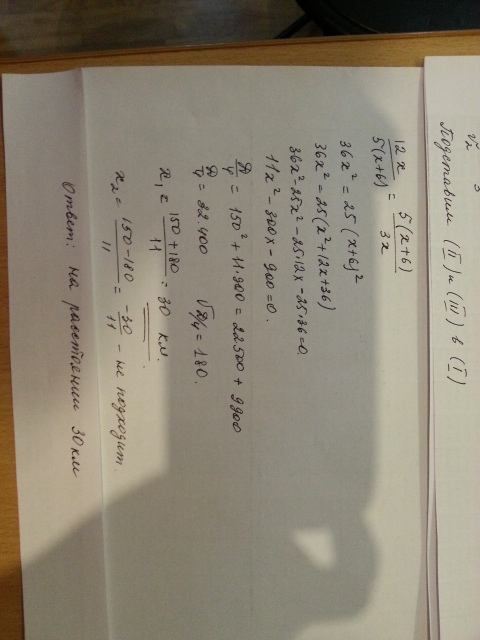 V₂ 3
Подставим (II) и (III) в (I)
12x / 5(x+6) = 5(x+6) / 3x
36x² = 25(x+6)²
36x² = 25(x²+12x+36)
36x²-25x²-25·12x-25·36=0
11x²-300x-900=0.
Д/4 = 150²+11·900=22500+9900
Д/4 = 32400 √Д/4 = 180.
x₁ = 150+180 / 11 = 30 км.
x₂ = 150-180 / 11 = -30 / 11 - не подходит
Ответ: на расстоянии 30 км